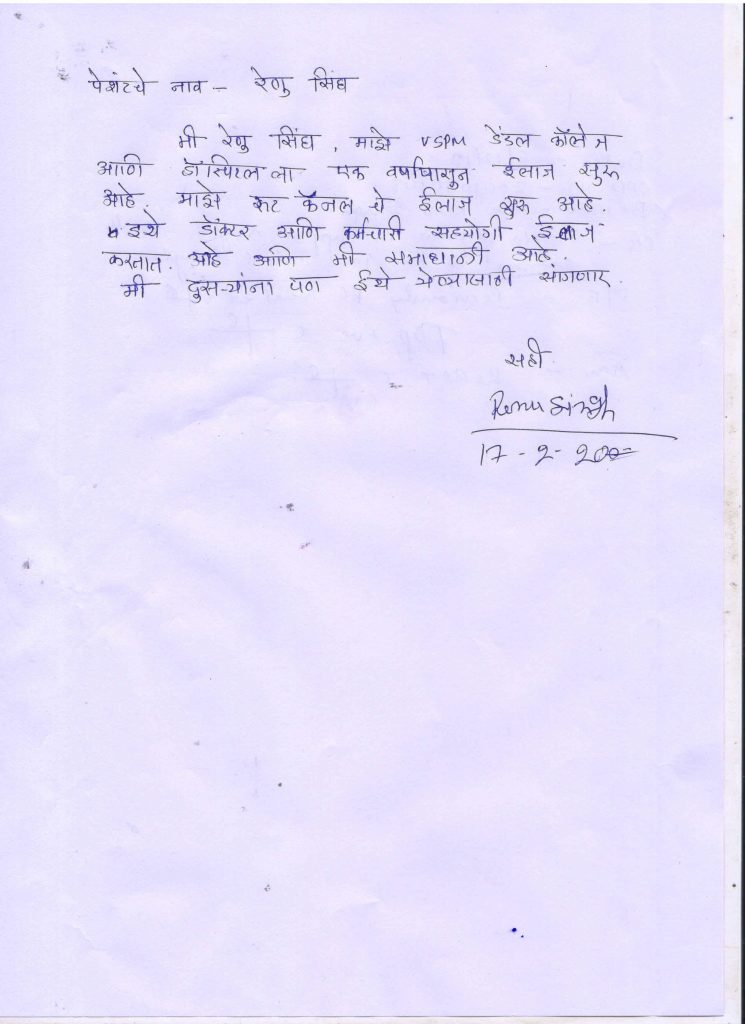 पेशंटचे नाव – रेणु सिंघ
मी रेणु सिंघ, माझे VSPM डेंडल कॉलेज
आणि डॉस्पिटल ला एक वर्षापासुन ईलाज सुरु
आहे. माझे रूट कॅनल चे ईलाज सुरु आहे.
इथे डॉक्टर आणि कर्मचारी सहयोगी ईलाज
करतात. आहे आणि मी समाधानी आहे.
मी दुसऱ्यांना पण ईथे येण्यासाठी सांगणार.
सही
Renu Singh
17-2-20